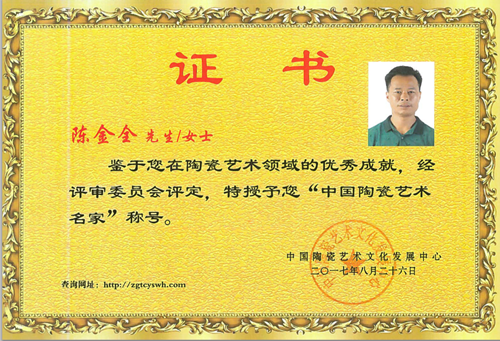 证 书
陈金全 先生/女士
鉴于您在陶瓷艺术领域的优秀成就，经
评审委员会评定，特授予您“中国陶瓷艺术
名家”称号。
中国陶瓷艺术文化发展中心
二〇一七年八月二十六日
查询网址：http://zgtcyswh.com